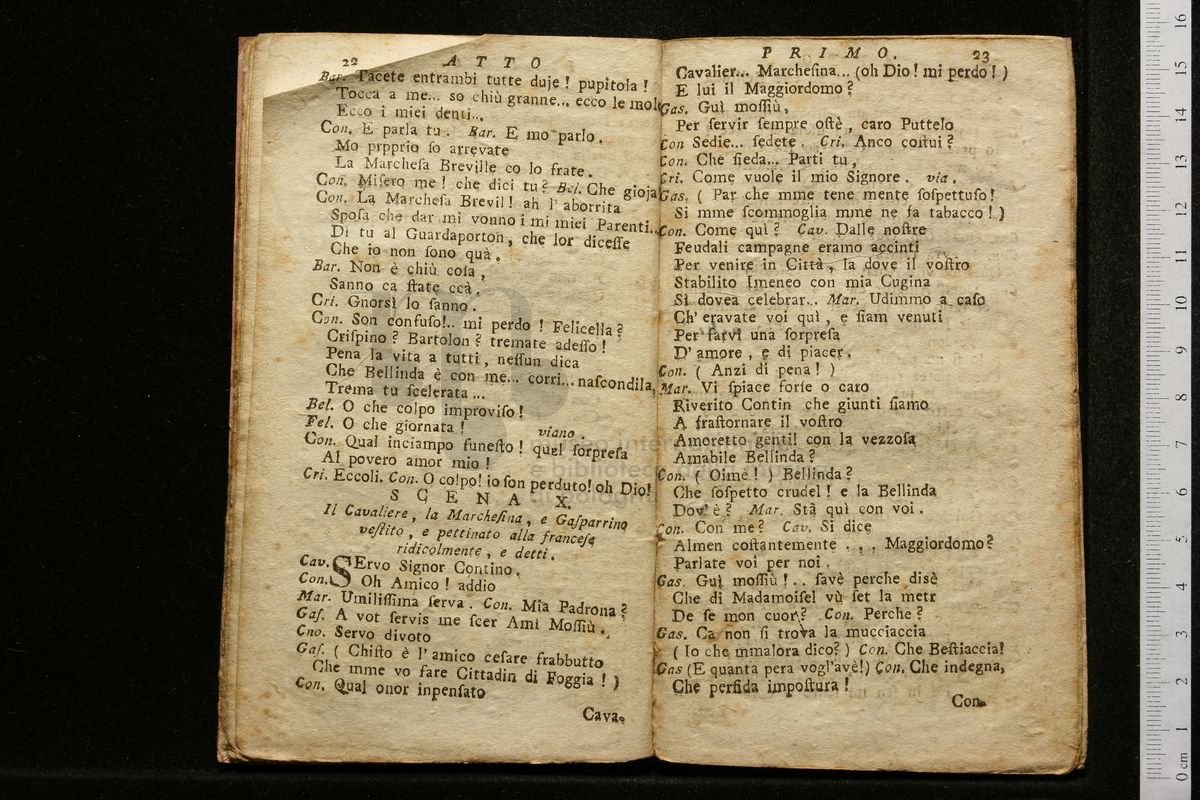 22 ATTO
Bar. Tacete entrambi tutte duje! pupitola!
Tocca a me... so chiù granne... ecco le mole
Ecco i miei denti...
Con. E parla tu. Bar. E mo parlo.
Mo prpprio ſo arrevate
La Marcheſa Breville co lo frate.
Con. Miſero me! che dici tu? Bel. Che gioja
Con. La Marcheſa Brevil! ah l'aborrita
Spoſa che dar mi vonno i mi miei Parenti...
Di tu al Guardaporton, che lor diceſſe
Che io non ſono quà.
Bar. Non è chiù coſa,
Sanno ca ſtate ccà.
Cri. Gnorsì lo ſanno.
Con. Son confuſo!.. mi perdo! Felicella?
Criſpino? Bartolon? tremate adeſſo!
Pena la vita a tutti, neſſun dica
Che Bellinda è con me... corri... naſcondila,
Trema tu ſcelerata...
Bel. O che colpo improviſo!
Fel. O che giornata! viano.
Con. Qual inciampo funeſto! quel ſorpreſa
Al povero amor mio!
Cri. Eccoli. Con. O colpo! io ſon perduto! oh Dio!
SCENA X.
Il Cavaliere, la Marcheſina, e Gaſparrino
veſtito, e pettinato alla franceſe
ridicolmente, e detti.
Cav. SErvo Signor Contino.
Con. Oh Amico! addio
Mar. Umiliſſima ſerva. Con. Mia Padrona?
Gaſ. A vot ſervis me ſcer Amì Moſſiù.
Cno. Servo divoto
Gaſ. (Chiſto è l'amico ceſare frabbutto
Che mme vo fare Cittadin di Foggia!)
Con. Qual onor inpenſato
Cava.
PRIMO. 23
Cavalier... Marcheſina... (oh Dio! mi perdo!)
E lui il Maggiordomo?
Gas. Guì moſſiù,
Per ſervir ſempre oſtè, caro Puttelo
Con Sedie... ſedete. Cri. Anco coſtui?
Con. Che ſieda... Parti tu,
Cri. Come vuole il mio Signore. via.
Gas. (Par che mme tene mente ſoſpettuſo!
Si mme ſcommoglia mme ne fa tabacco!)
Con. Come quì? Cav. Dalle noſtre
Feudali campagne eramo accinti
Per venire in Città, la dove il voſtro
Stabilito Imeneo con mia Cugina
Si dovea celebrar... Mar. Udimmo a caſo
Ch'eravate voi quì, e ſiam venuti
Per farvi una ſorpreſa
D'amore, e di piacer.
Con. (Anzi di pena!)
Mar. Vi ſpiace forſe o caro
Riverito Contin che giunti ſiamo
A fraſtornare il voſtro
Amoretto gentil con la vezzoſa
Amabile Bellinda?
Con. (Oimè!) Bellinda?
Che ſoſpetto crudel! e la Bellinda
Dov'è? Mar. Stà quì con voi.
Con. Con me? Cav. Si dice
Almen coſtantemente... Maggiordomo?
Parlate voi per noi.
Gas. Guì moſſiù!.. ſavè perche disè
Che di Madamoiſel vù ſet la metr
De ſe mon cuor? Con. Perche?
Gas. Ca non ſi trova la mucciaccia
(Io che mmalora dico?) Con. Che Beſtiaccia!
Gas (E quanta pera vogl'avè!) Con. Che indegna,
Che perfida impoſtura!
Con.